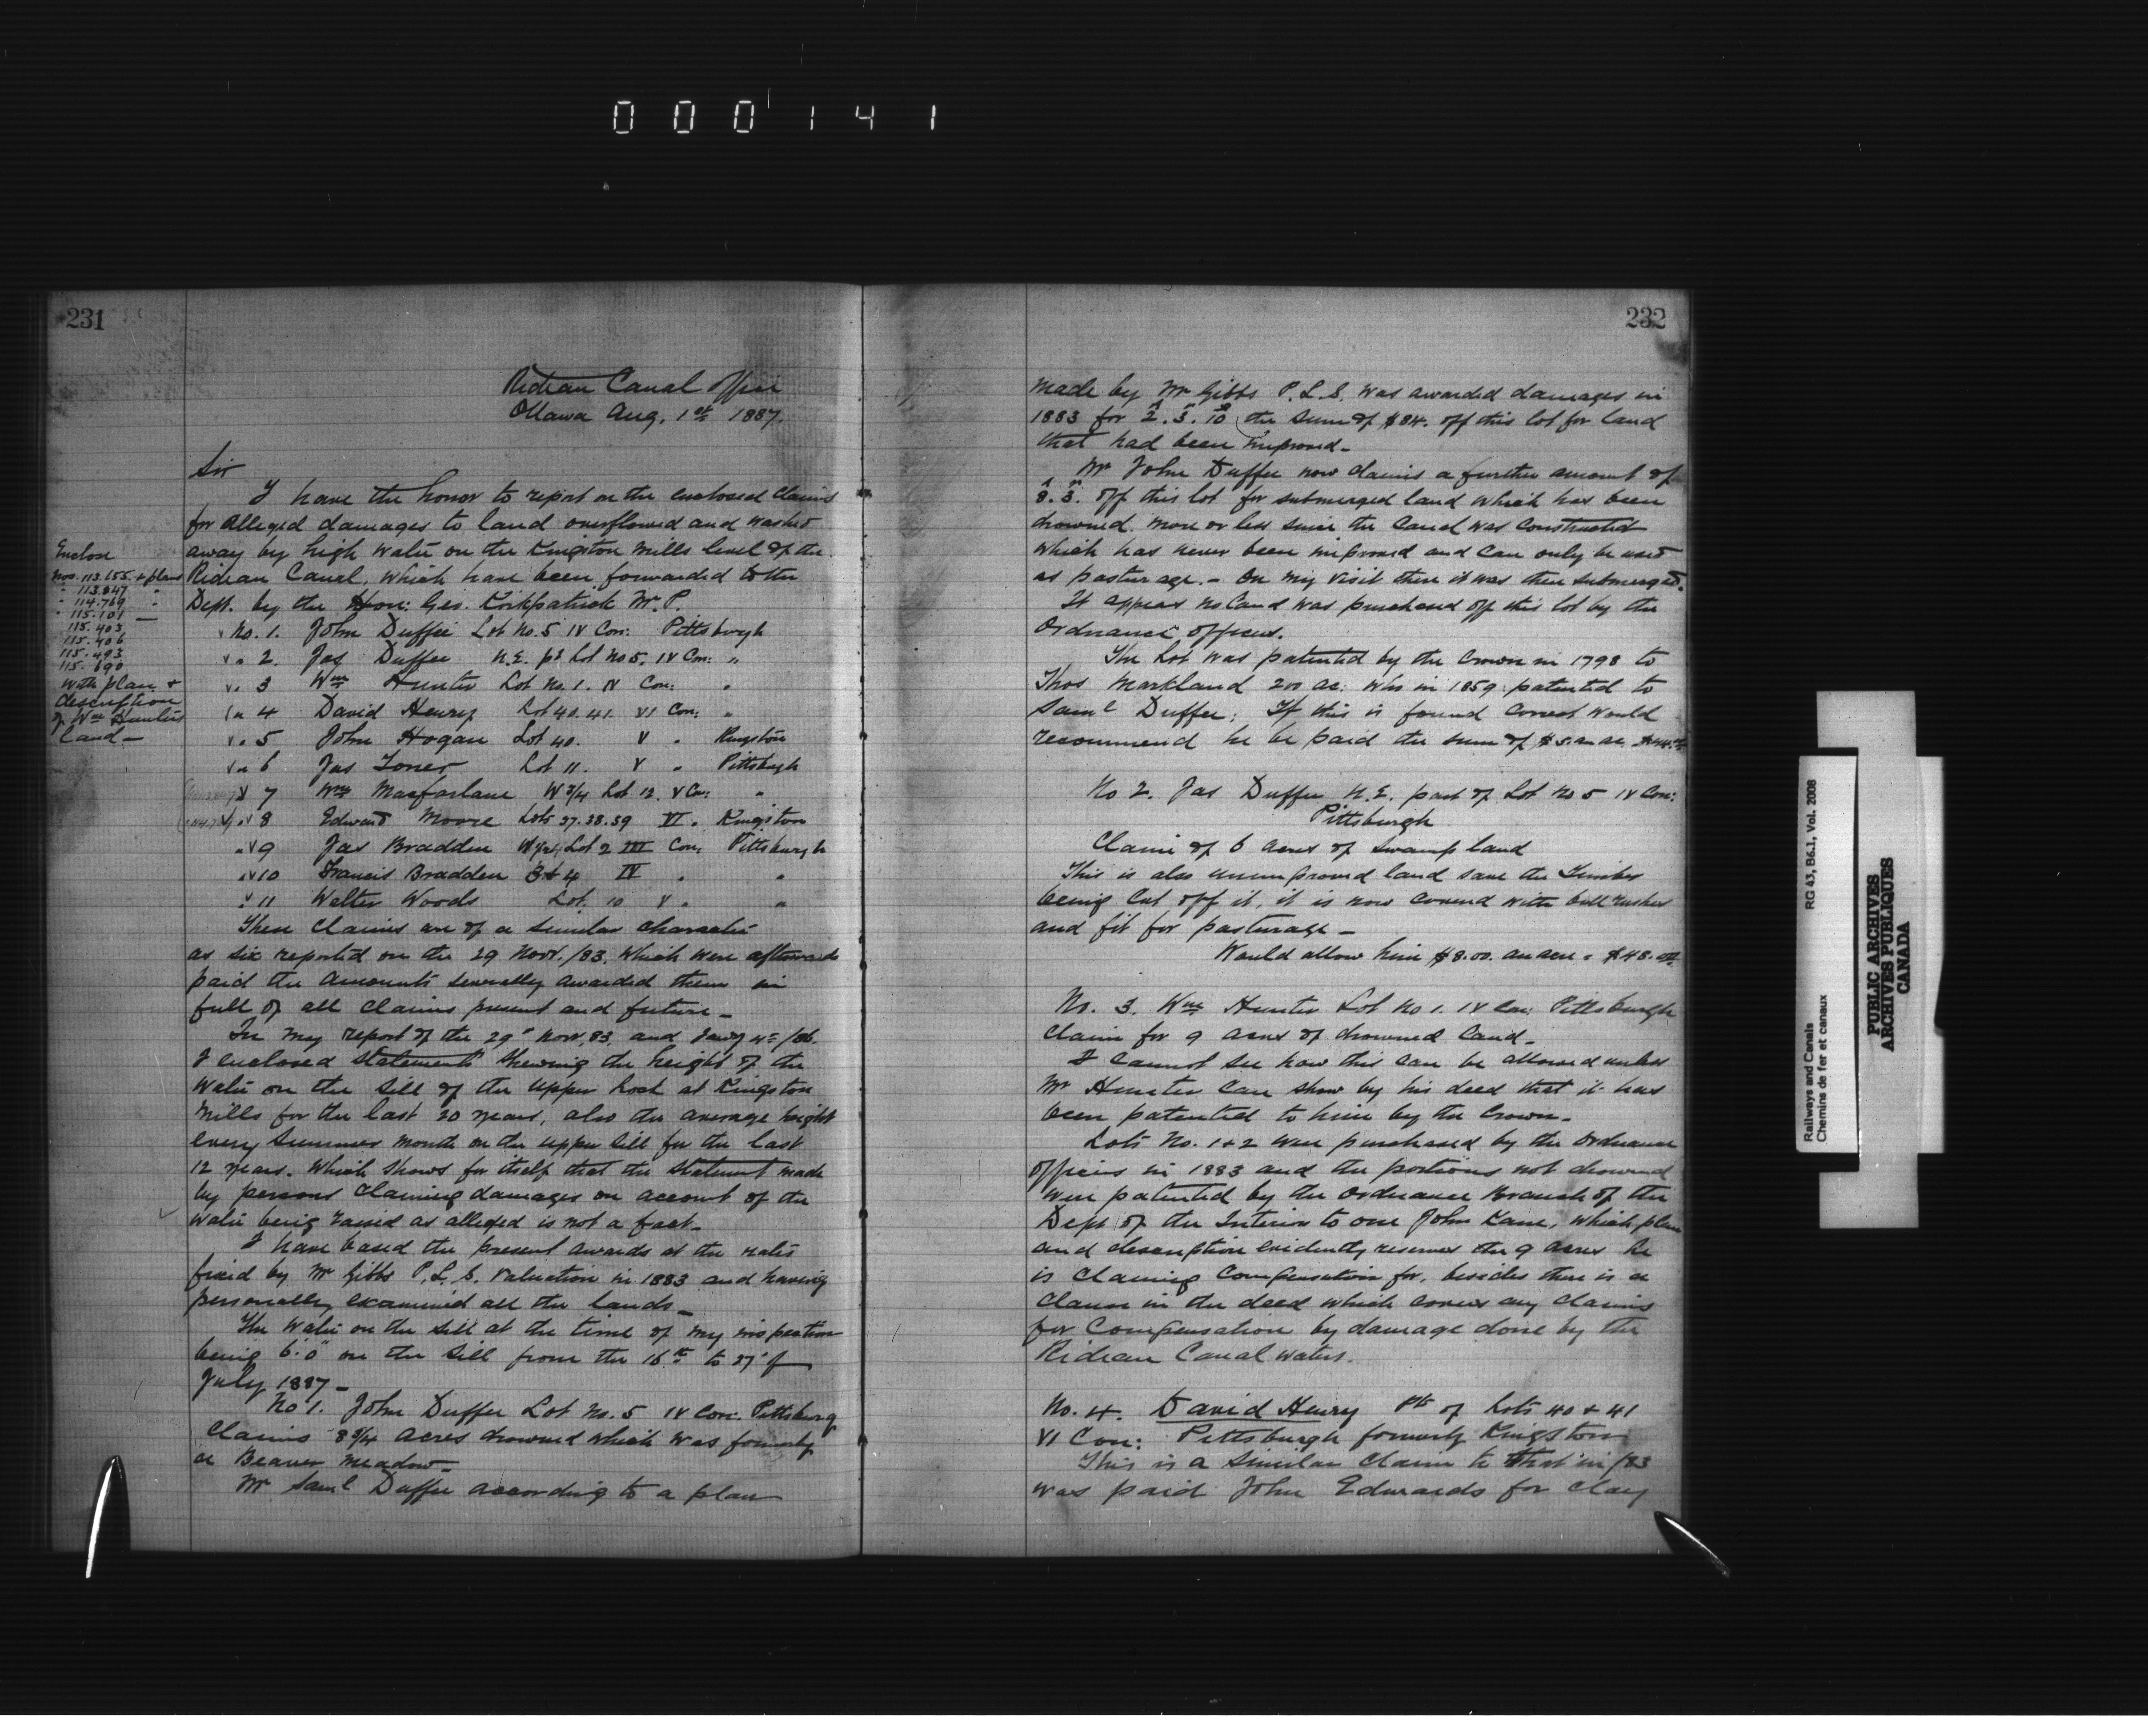 000141
231
Rideau Canal Office
Ottawa Aug. 1st 1887.
Sir
I have the honor to report on the enclosed claims
for alleged damages to land overflowed and washed
away by high water on the Kingston Mills level of the
Rideau Canal, which have been forwarded to the
Dept. by the Hon: Geo. Kirkpatrick M.P.
Enclose
Nos. 113.655 + plans
" 113.847 "
" 114.769 "
" 115.101
115.403
115.406
115.493
115.690
with plan +
description
of Wm Hunters
land —
No. 1. John Duffee Lot No. 5 IV Con: Pittsburgh
v " 2. Jas Duffee N.E. pt Lot No 5. IV Con: "
v " 3 Wm Hunter Lot No. 1. IV Con: "
" 4 David Henry Lot 40.41. VI Con: "
v " 5 John Hogan Lot 40. V " Kingston
v " 6 Jas Toner Lot 11. V " Pittsburgh
v 7 Wm Macfarlane W 3/4 Lot 12. V Con: "
v 8 Edward Moore Lots 37.38.39 VI " Kingston
" v 9 Jas Bradden Lot 2 III Con: Pittsburgh
" v 10 Francis Bradden 3 & 4 IV " "
" 11 Walter Woods Lot. 10 V " "
These claims are of a similar character
as six reported on the 29 Novr. /83. which were afterwards
paid the amounts severally awarded them in
full of all claims present and future —
In my report of the 29th Novr. 83. and Jany 4th /86.
I enclosed statements shewing the height of the
water on the sill of the upper Lock at Kingston
Mills for the last 20 years, also the average height
every summer month on the upper sill for the last
12 years. Which shows for itself that the statement made
by persons claiming damages on account of the
water being raised as alleged is not a fact —
I have based the present awards at the rates
fixed by Mr Gibbs P.L.S. valuation in 1883 and having
personally examined all the lands —
The water on the sill at the time of my inspection
being 6'.0" on the sill from the 16th to 27th of
July 1887 —
No 1. John Duffee Lot No. 5 IV Con. Pittsburg
Claims 8 3/4 acres drowned which was formerly
a Beaver meadow —
Mr Saml Duffee according to a plan
232
made by Mr Gibbs P.L.S. was awarded damages in
1883 for 2. 3. 10 the sum of $84. off this lot for land
that had been improved —
Mr John Duffee now claims a further amount of
8. 3. off this lot for submerged land which has been
drowned more or less since the Canal was constructed
which has never been improved and can only be used
as pasturage. — On my visit there it was then submerged.
It appears no land was purchased off this lot by the
Ordnance officers.
The Lot was patented by the Crown in 1798 to
Thos Markland 200 ac: who in 1859 patented to
Saml Duffee; If this is found correct would
recommend he be paid the sum of $5. an ac.
No 2. Jas Duffee N.E. part of Lot No 5 IV Con:
Pittsburgh
Claim of 6 acres of swamp land
This is also unimproved land save the Timber
being Cut off it, it is now covered with bull rushes
and fit for pasturage —
Would allow him $8.00. an acre = $48.00
No. 3. Wm Hunter Lot No 1. IV Con: Pittsburgh
Claim for 9 acres of drowned land —
I cannot see how this can be allowed unless
Mr Hunter can show by his deed that it has
been patented to him by the Crown —
Lots No. 1 + 2 were purchased by the Ordnance
officers in 1883 and the portions not drowned
were patented by the Ordnance Branch of the
Dept of the Interior to one John Kane, which plan
and description evidently reserves the 9 acres he
is claiming compensation for, besides there is a
clause in the deed which covers any claims
for compensation by damage done by the
Rideau Canal waters.
No. 4. David Henry Pts of Lots 40 + 41
VI Con: Pittsburgh formerly Kingston
This is a similar claim to that in /83
was paid John Edwards for clay
Railways and Canals
Chemins de fer et canaux
RG 43, B6.1, Vol. 2008
PUBLIC ARCHIVES
ARCHIVES PUBLIQUES
CANADA